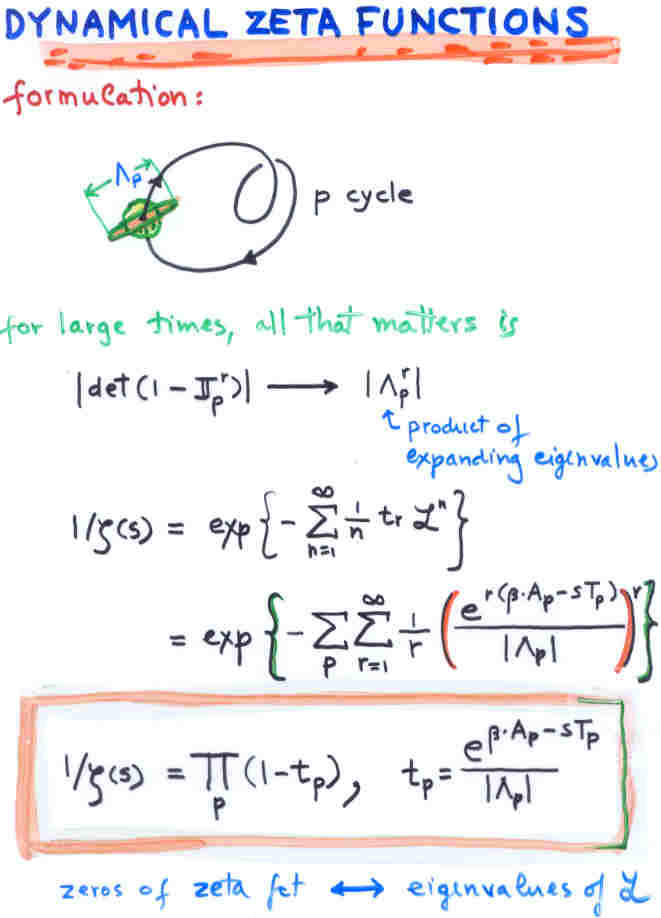 DYNAMICAL ZETA FUNCTIONS
formulation:
Λp
p cycle
for large times, all that matters is
|det(1 - J_p^r)| ⟶ |Λ_p^r|
↑ product of
expanding eigenvalues
1/ζ(s) = exp{- ∑_{n=1}^∞ 1/n tr ℒ^n}
= exp{- ∑_p ∑_{r=1}^∞ 1/r (e^{r(β·A_p - sT_p)} / |Λ_p|)^r}
1/ζ(s) = ∏_p (1 - t_p), t_p = e^{β·A_p - sT_p} / |Λ_p|
zeros of zeta fct ↔ eigenvalues of ℒ